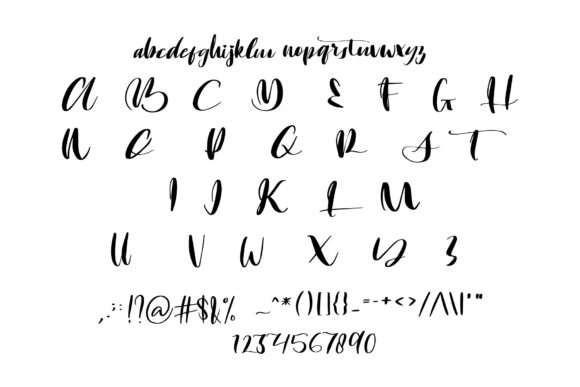 abcdefghijklm nopqrstuvwxyz
A B C D E F G H
N O P Q R S T
I J K L M
U V W X Y Z
,.:;!?@#$&% ~^*()[]{}_=-+<>//\\|'"
1234567890